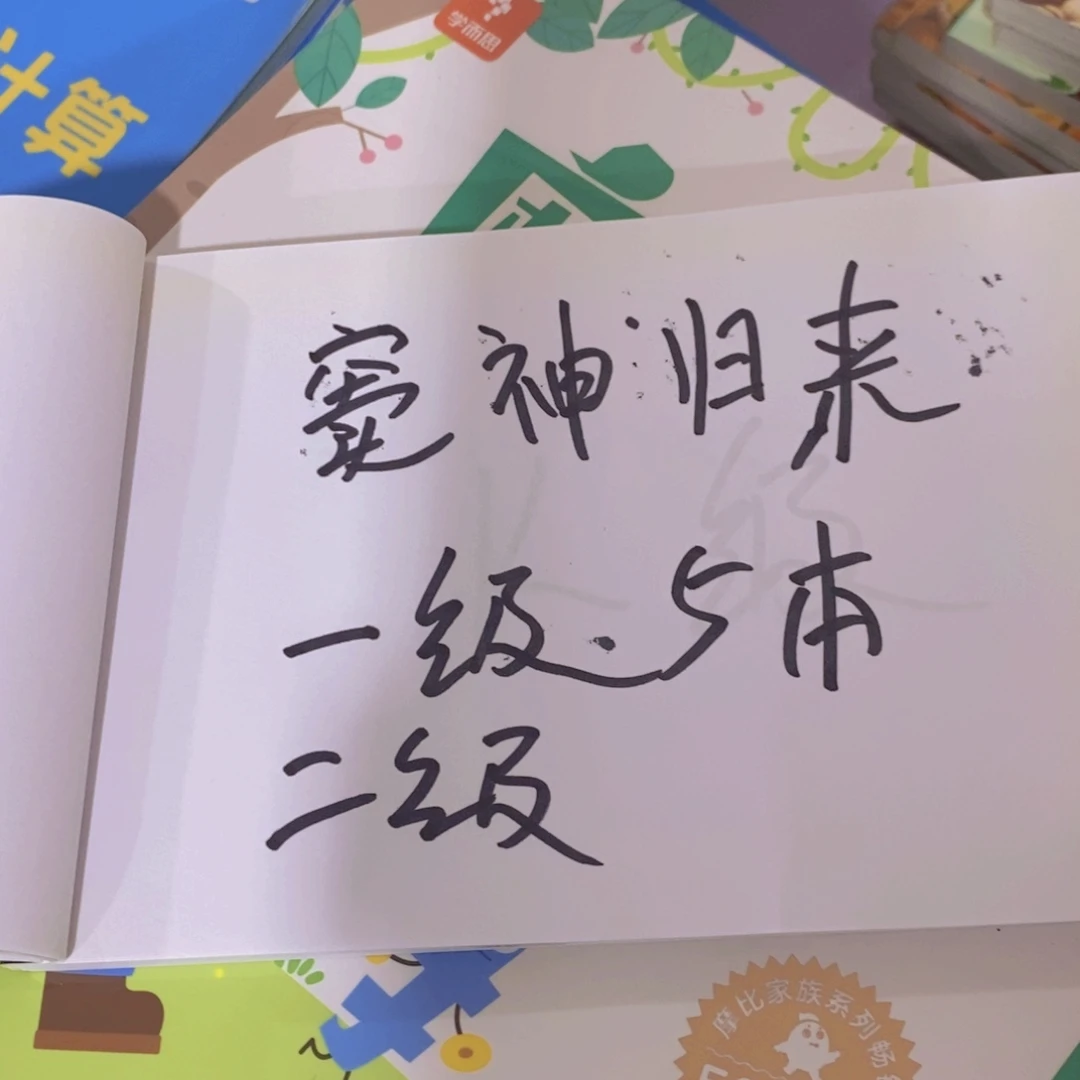 学而思
计算
窦神归来
一级.5本
二级
摩比家族系列畅